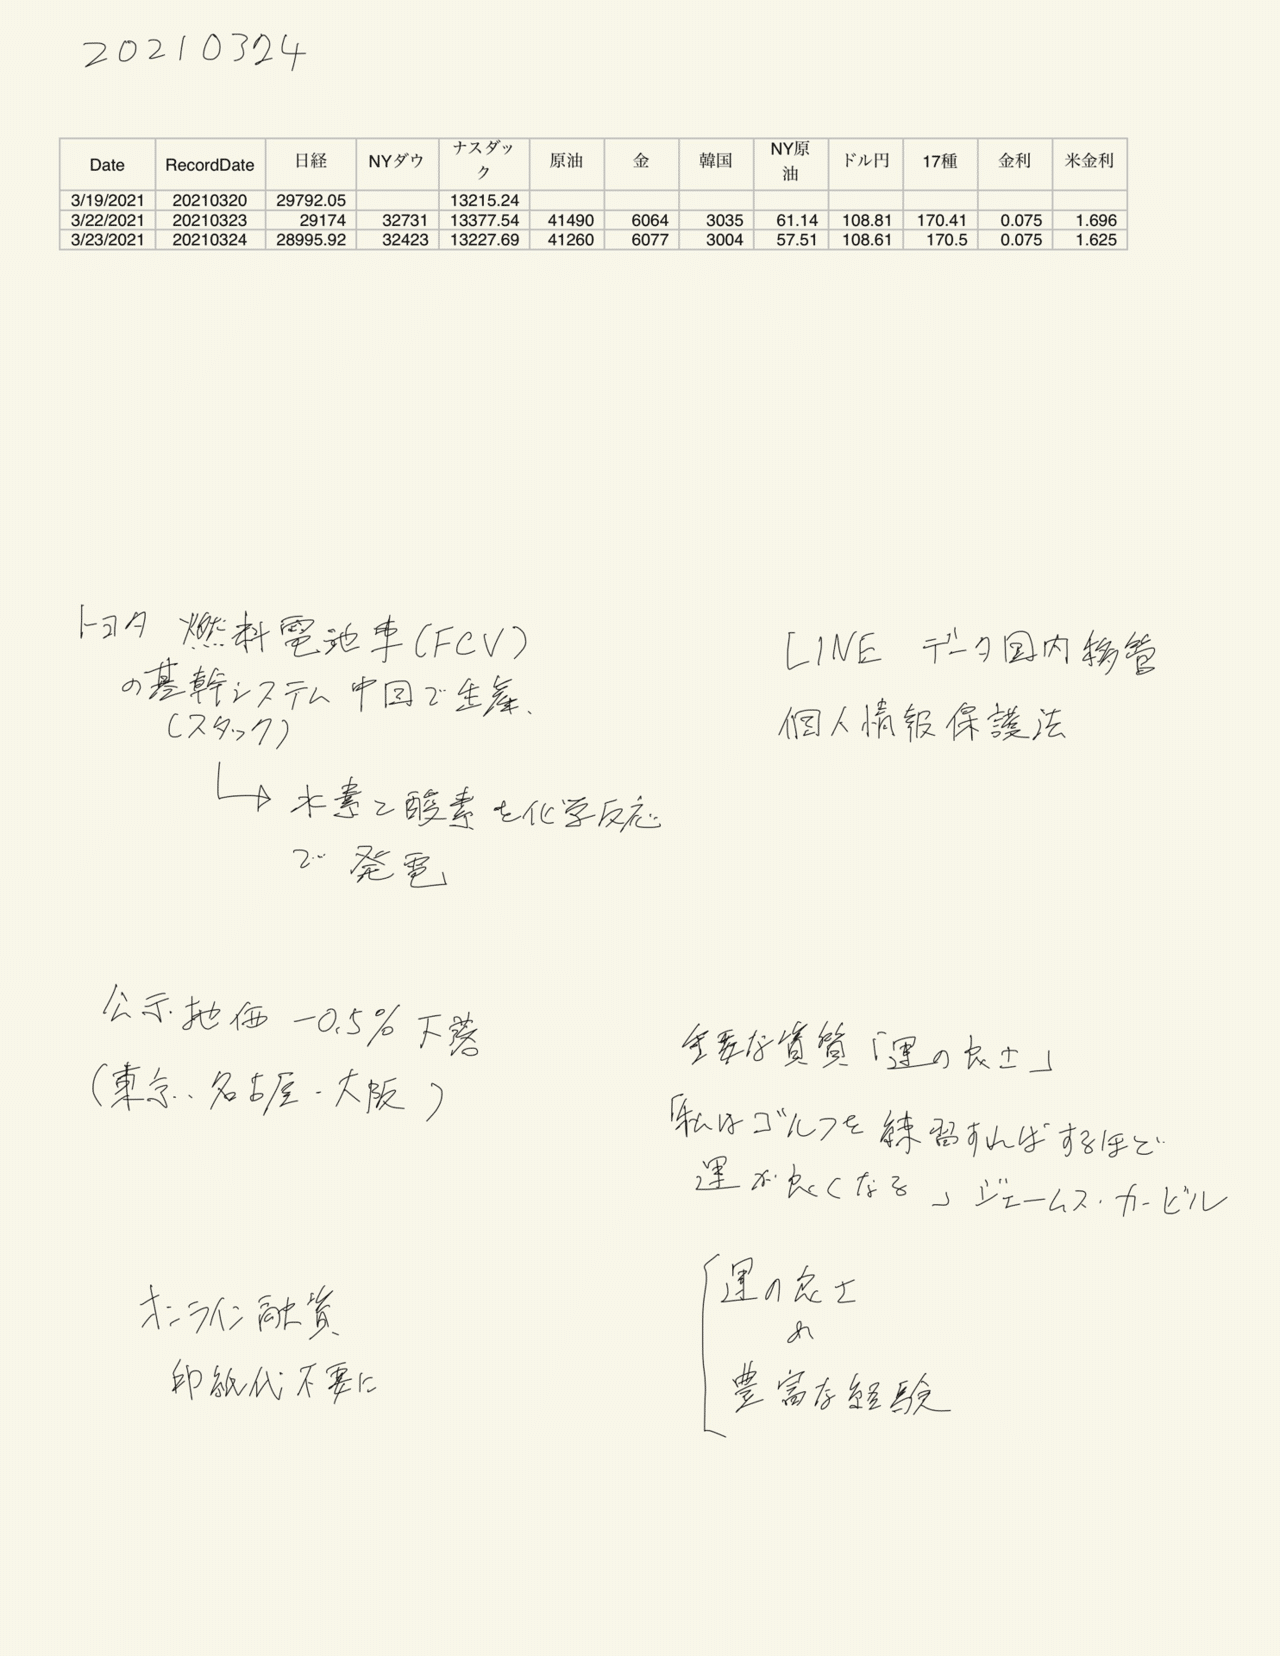 20210324
Date RecordDate 日経 NYダウ ナスダック 原油 金 韓国 NY原油 ドル円 17種 金利 米金利
3/19/2021 20210320 29792.05 13215.24
3/22/2021 20210323 29174 32731 13377.54 41490 6064 3035 61.14 108.81 170.41 0.075 1.696
3/23/2021 20210324 28995.92 32423 13227.69 41260 6077 3004 57.51 108.61 170.5 0.075 1.625
トヨタ 燃料電池車(FCV)
の基幹システム 中国で生産、
(スタック)
→ 水素と酸素を化学反応
で 発電
LINE データ国内移管
個人情報保護法
公示地価 -0.5% 下落
(東京・名古屋・大阪)
オンライン融資
印紙代不要に
重要な資質「運の良さ」
「私はゴルフを練習すればするほど
運が良くなる」ジェームス・カービル
運の良さ
豊富な経験